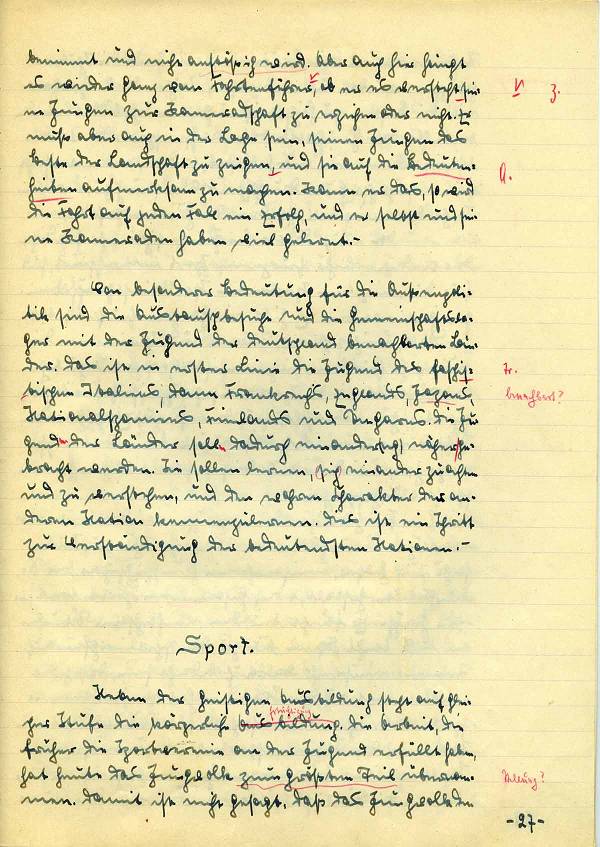 benimmt und nicht anstössig wird. Aber auch hier hängt
es wieder ganz vom Fahrtenführer, ob er es versteht sei-
ne Jungen zur Kameradschaft zu erziehen oder nicht. Er
muß aber auch in der Lage sein, seinen Jungen das
beste der Landschaft zu zeigen, und sie auf die Bedeuten-
heiten aufmerksam zu machen. Kann er das, so wird
die Fahrt auf jeden Fall ein Erfolg, und er selbst und sei-
ne Kameraden haben viel gelernt.-
Von besonderer Bedeutung für die Außenpoli-
tik sind die Austauschbesuche und die Gemeinschaftsla-
ger mit der Jugend der Deutschland benachbarten Län-
der. Das ist in erster Linie die Jugend des faschis-
tischen Italiens, dann Frankreichs, Englands, Japans,
Nationalspaniens, Finlands und Ungarns. Die Ju-
gend der Länder soll dadurch einander näher ge-
bracht werden. Sie sollen lernen, sich einander zu achten
und zu verstehen, und den wahren Charakter der an-
deren Nation kennenzulernen. Dies ist ein Schritt
zur Verständigung der bedeutendsten Nationen.-
Sport.
Neben der geistigen Ausbildung steht auf glei-
cher Stufe die körperliche Ausbildung. Die Arbeit, die
früher die Sportvereine an der Jugend erfüllt haben,
hat heute das Jungvolk zum größten Teil übernom-
men. Damit ist nicht gesagt, daß das Jungvolk den
V Z.
A.
benachbart?
Stellung?
-27-